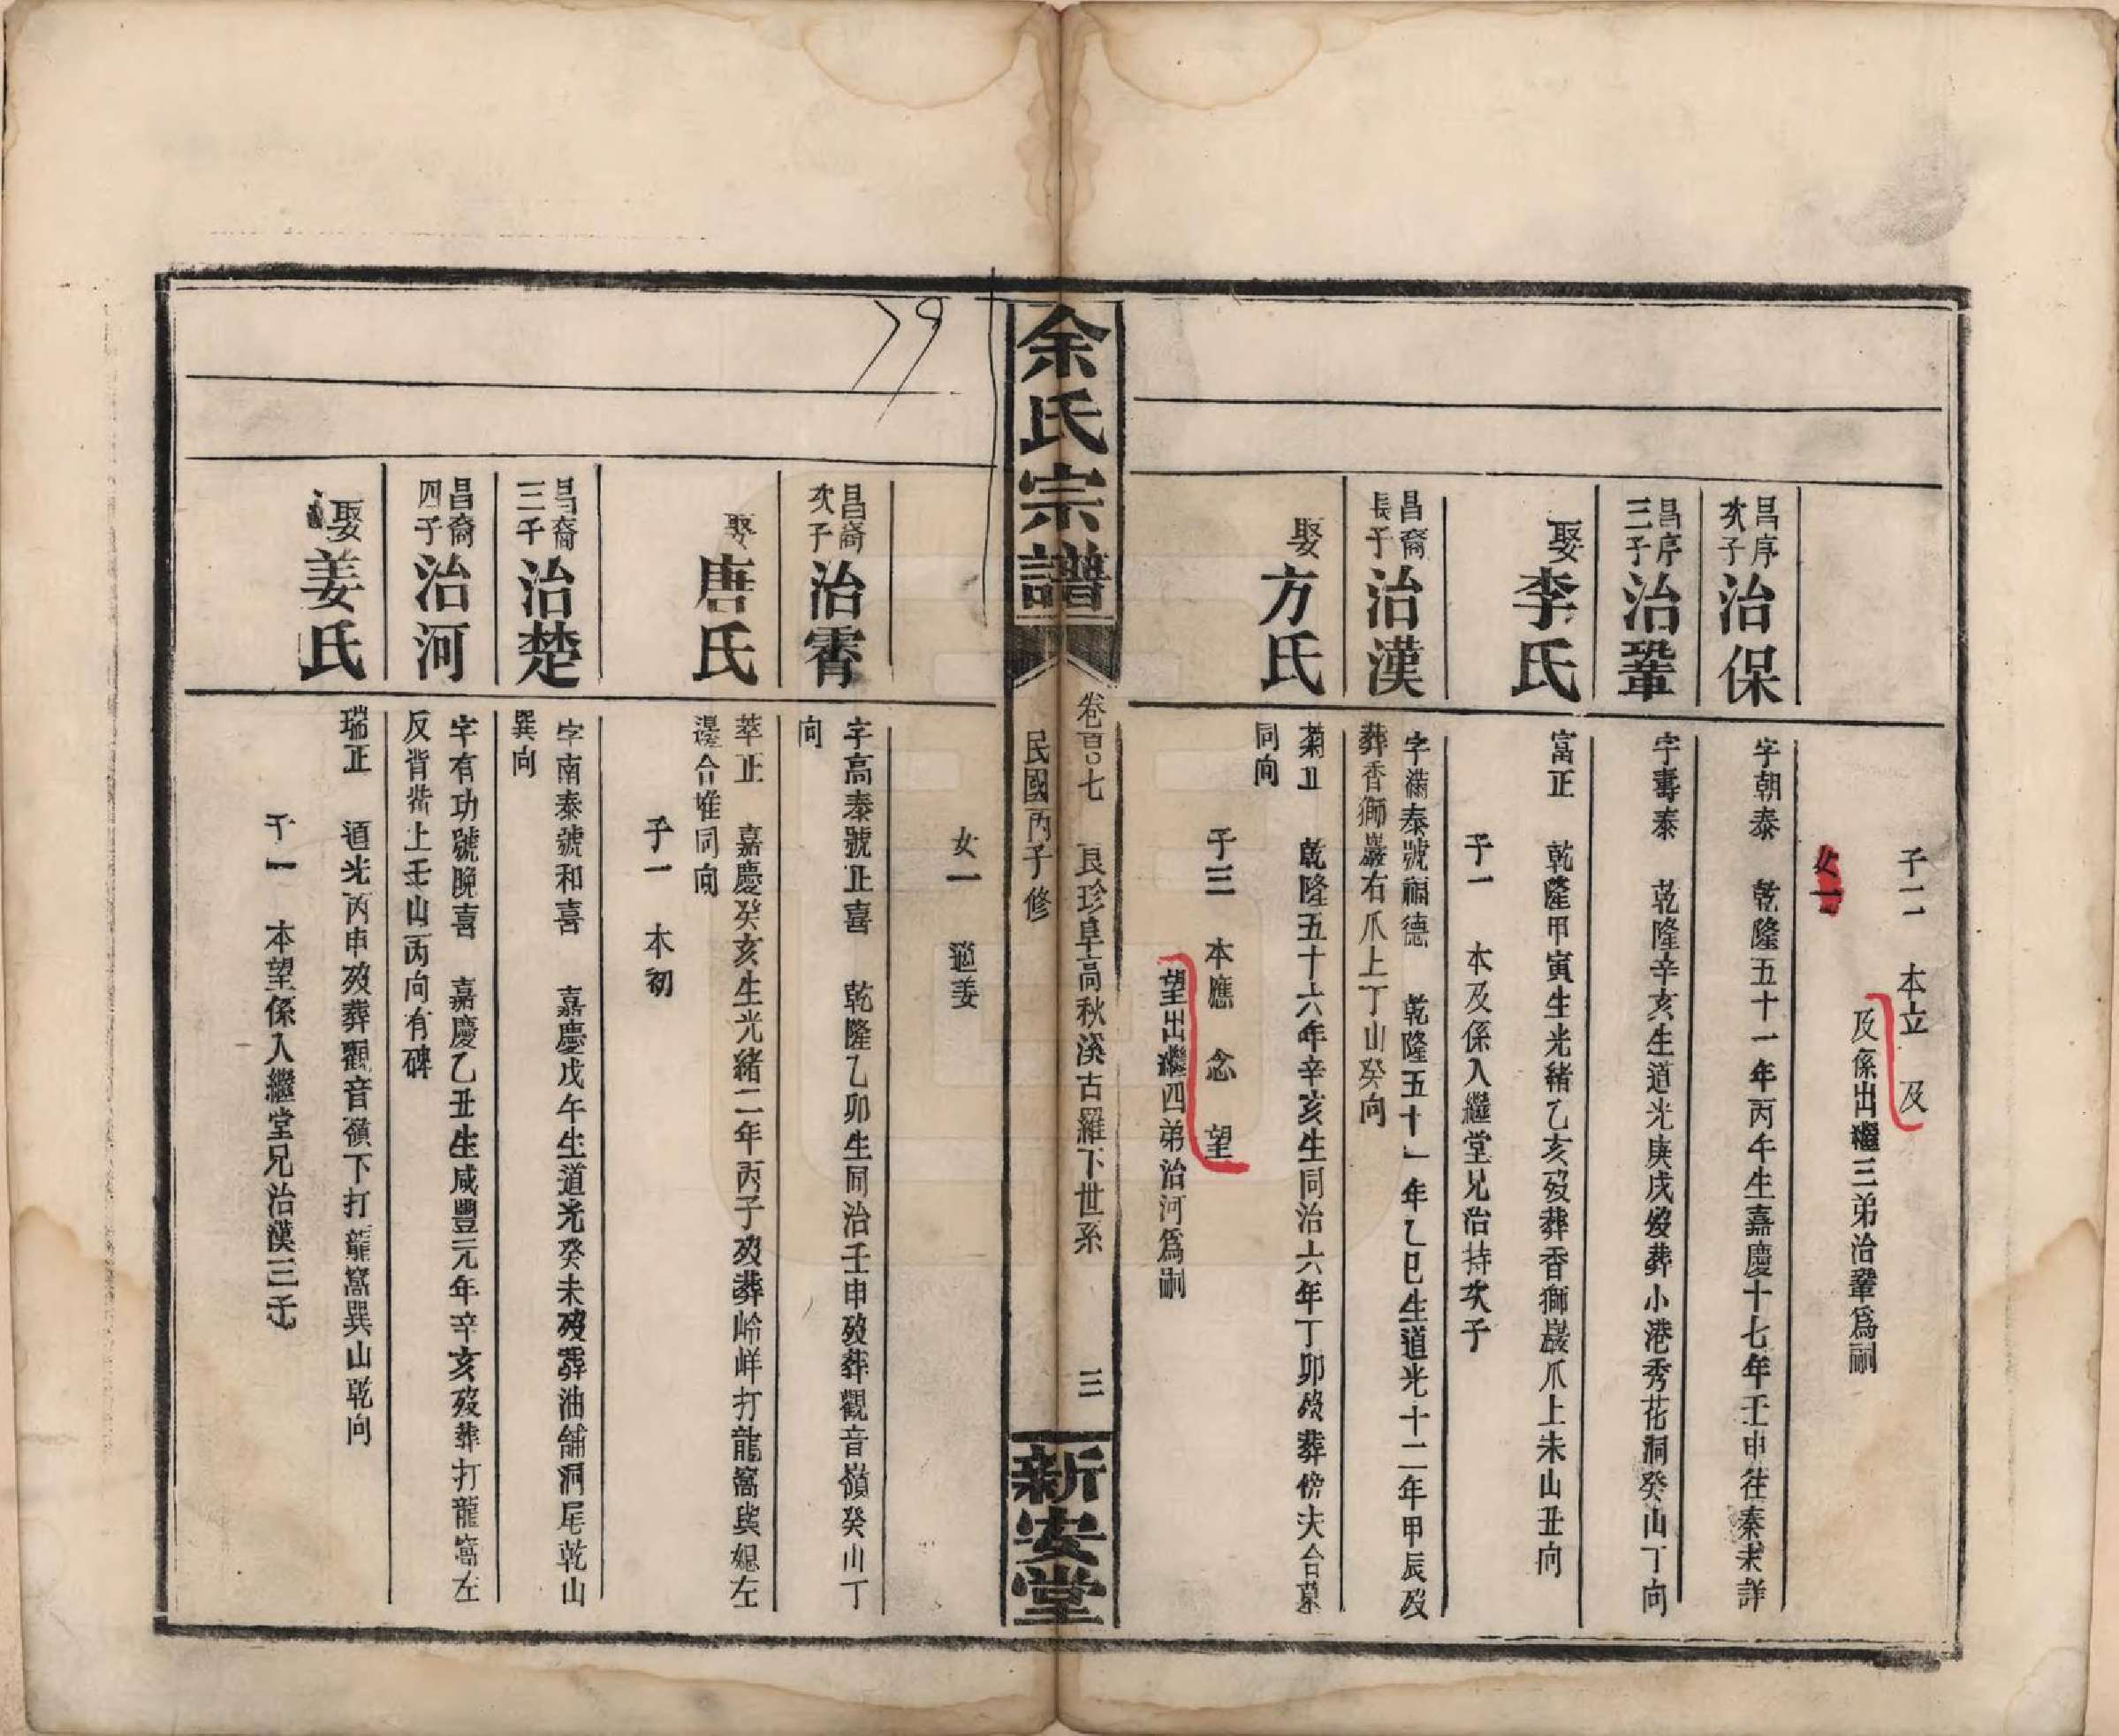 子二　本立　及
及係出繼三弟治鞏爲嗣
女一
昌序次子　治保
字朝泰　乾隆五十一年丙午生嘉慶十七年壬申往秦未詳
昌序三子　治鞏
字壽泰　乾隆辛亥生道光庚戌歿葬小港秀花洞癸山丁向
娶李氏
富正　乾隆甲寅生光緒乙亥歿葬香獅巖爪上未山丑向
子一　本及係入繼堂兄治持次子
昌裔長子　治漢
字滿泰號福德　乾隆五十一年乙巳生道光十二年甲辰歿
葬香獅巖右爪上丁山癸向
娶方氏
菊正　乾隆五十六年辛亥生同治六年丁卯歿葬傍夫合墓
同向
子三　本應　念　望
望出繼四弟治河爲嗣
余氏宗譜
卷百七　良珍阜高秋溪古羅下世系　三
民國丙子修
新安堂
79
女一　適姜
昌裔次子　治霄
字高泰號正喜　乾隆乙卯生同治壬申歿葬觀音嶺癸山丁
向
娶唐氏
萃正　嘉慶癸亥生光緒二年丙子歿葬岭岸打龍窩與媳左
邊合堆同向
子一　本初
昌裔三子　治楚
字南泰號和喜　嘉慶戊午生道光癸未歿葬油舖洞尾乾山
巽向
昌裔四子　治河
字有功號晚喜　嘉慶乙丑生咸豐元年辛亥歿葬打龍窩左
反背嘴上壬山丙向有碑
娶姜氏
瑞正　道光丙申歿葬觀音嶺下打龍窩巽山乾向
子一　本望係入繼堂兄治漢三子